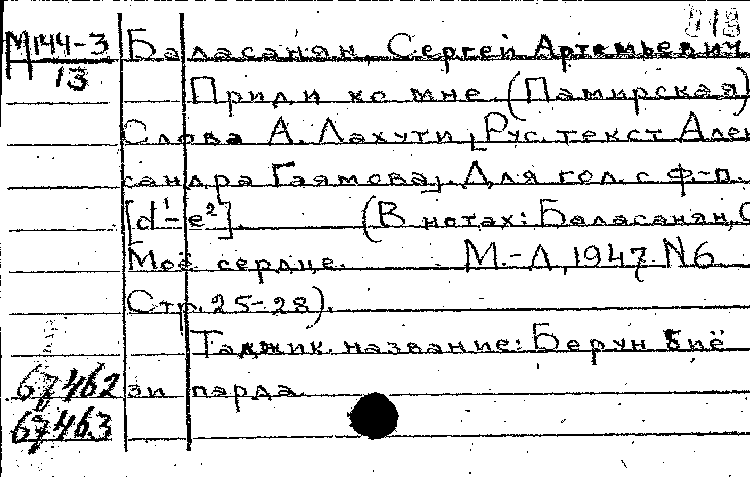 М144-3 Баласанян, Сергей Артемьевич
13
Приди ко мне. (Памирская)
Слова А. Лахути, Рус. текст Алек
сандра Гаямова, Для гол. с ф.-п.
[d¹-e²]. (В нотах: Баласанян, С
Моё сердце. М.-Л, 1947. N6
Стр. 25-28).
Таджик. название: Берун биё
67462 зи парда.
67463